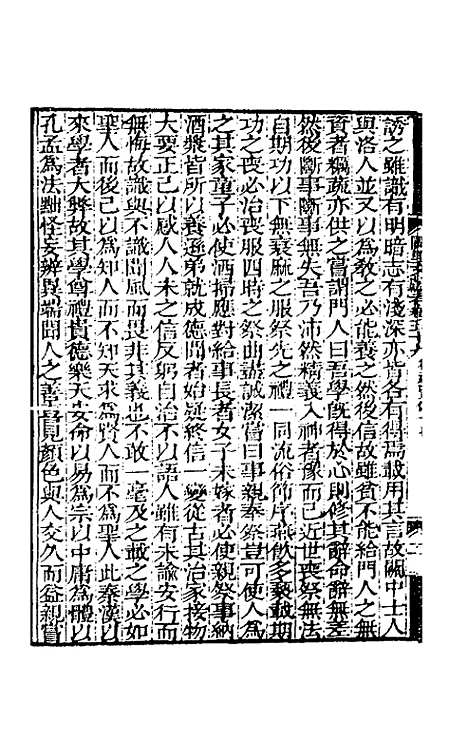 誘之雖識有明暗志有淺深亦皆各有得焉載用其言故關中士人
與洛人並又以為教之必能養之然後信故雖貧不能給門人之無
資者糲疏亦供之嘗謂門人曰吾學旣得於心則修其辭命辭無差
然後斷事斷事無失吾乃沛然精義入神者豫而已近世喪祭無法
自期功以下無衰麻之服祭先之禮一同流俗節序燕飲多褻載期
功之喪必治喪服四時之祭曲盡誠潔嘗曰事親奉祭豈可使人為
之其家童子必使洒掃應對給事長者女子未嫁者必使親祭事納
酒漿皆所以養遜弟就成德聞者始疑終信一變從古其治家接物
大要正己以感人人未之信反躬自治不以語人雖有未諭安行而
無悔故識與不識聞風而畏非其義也不敢一毫及之載之學必如
聖人而後已以為知人而不知天求為賢人而不為聖人此秦漢以
來學者大弊故其學尊禮貴德樂天安命以易為宗以中庸為體以
孔孟為法黜怪妄辨異端聞人之善喜見顏色與人交久而益親嘗